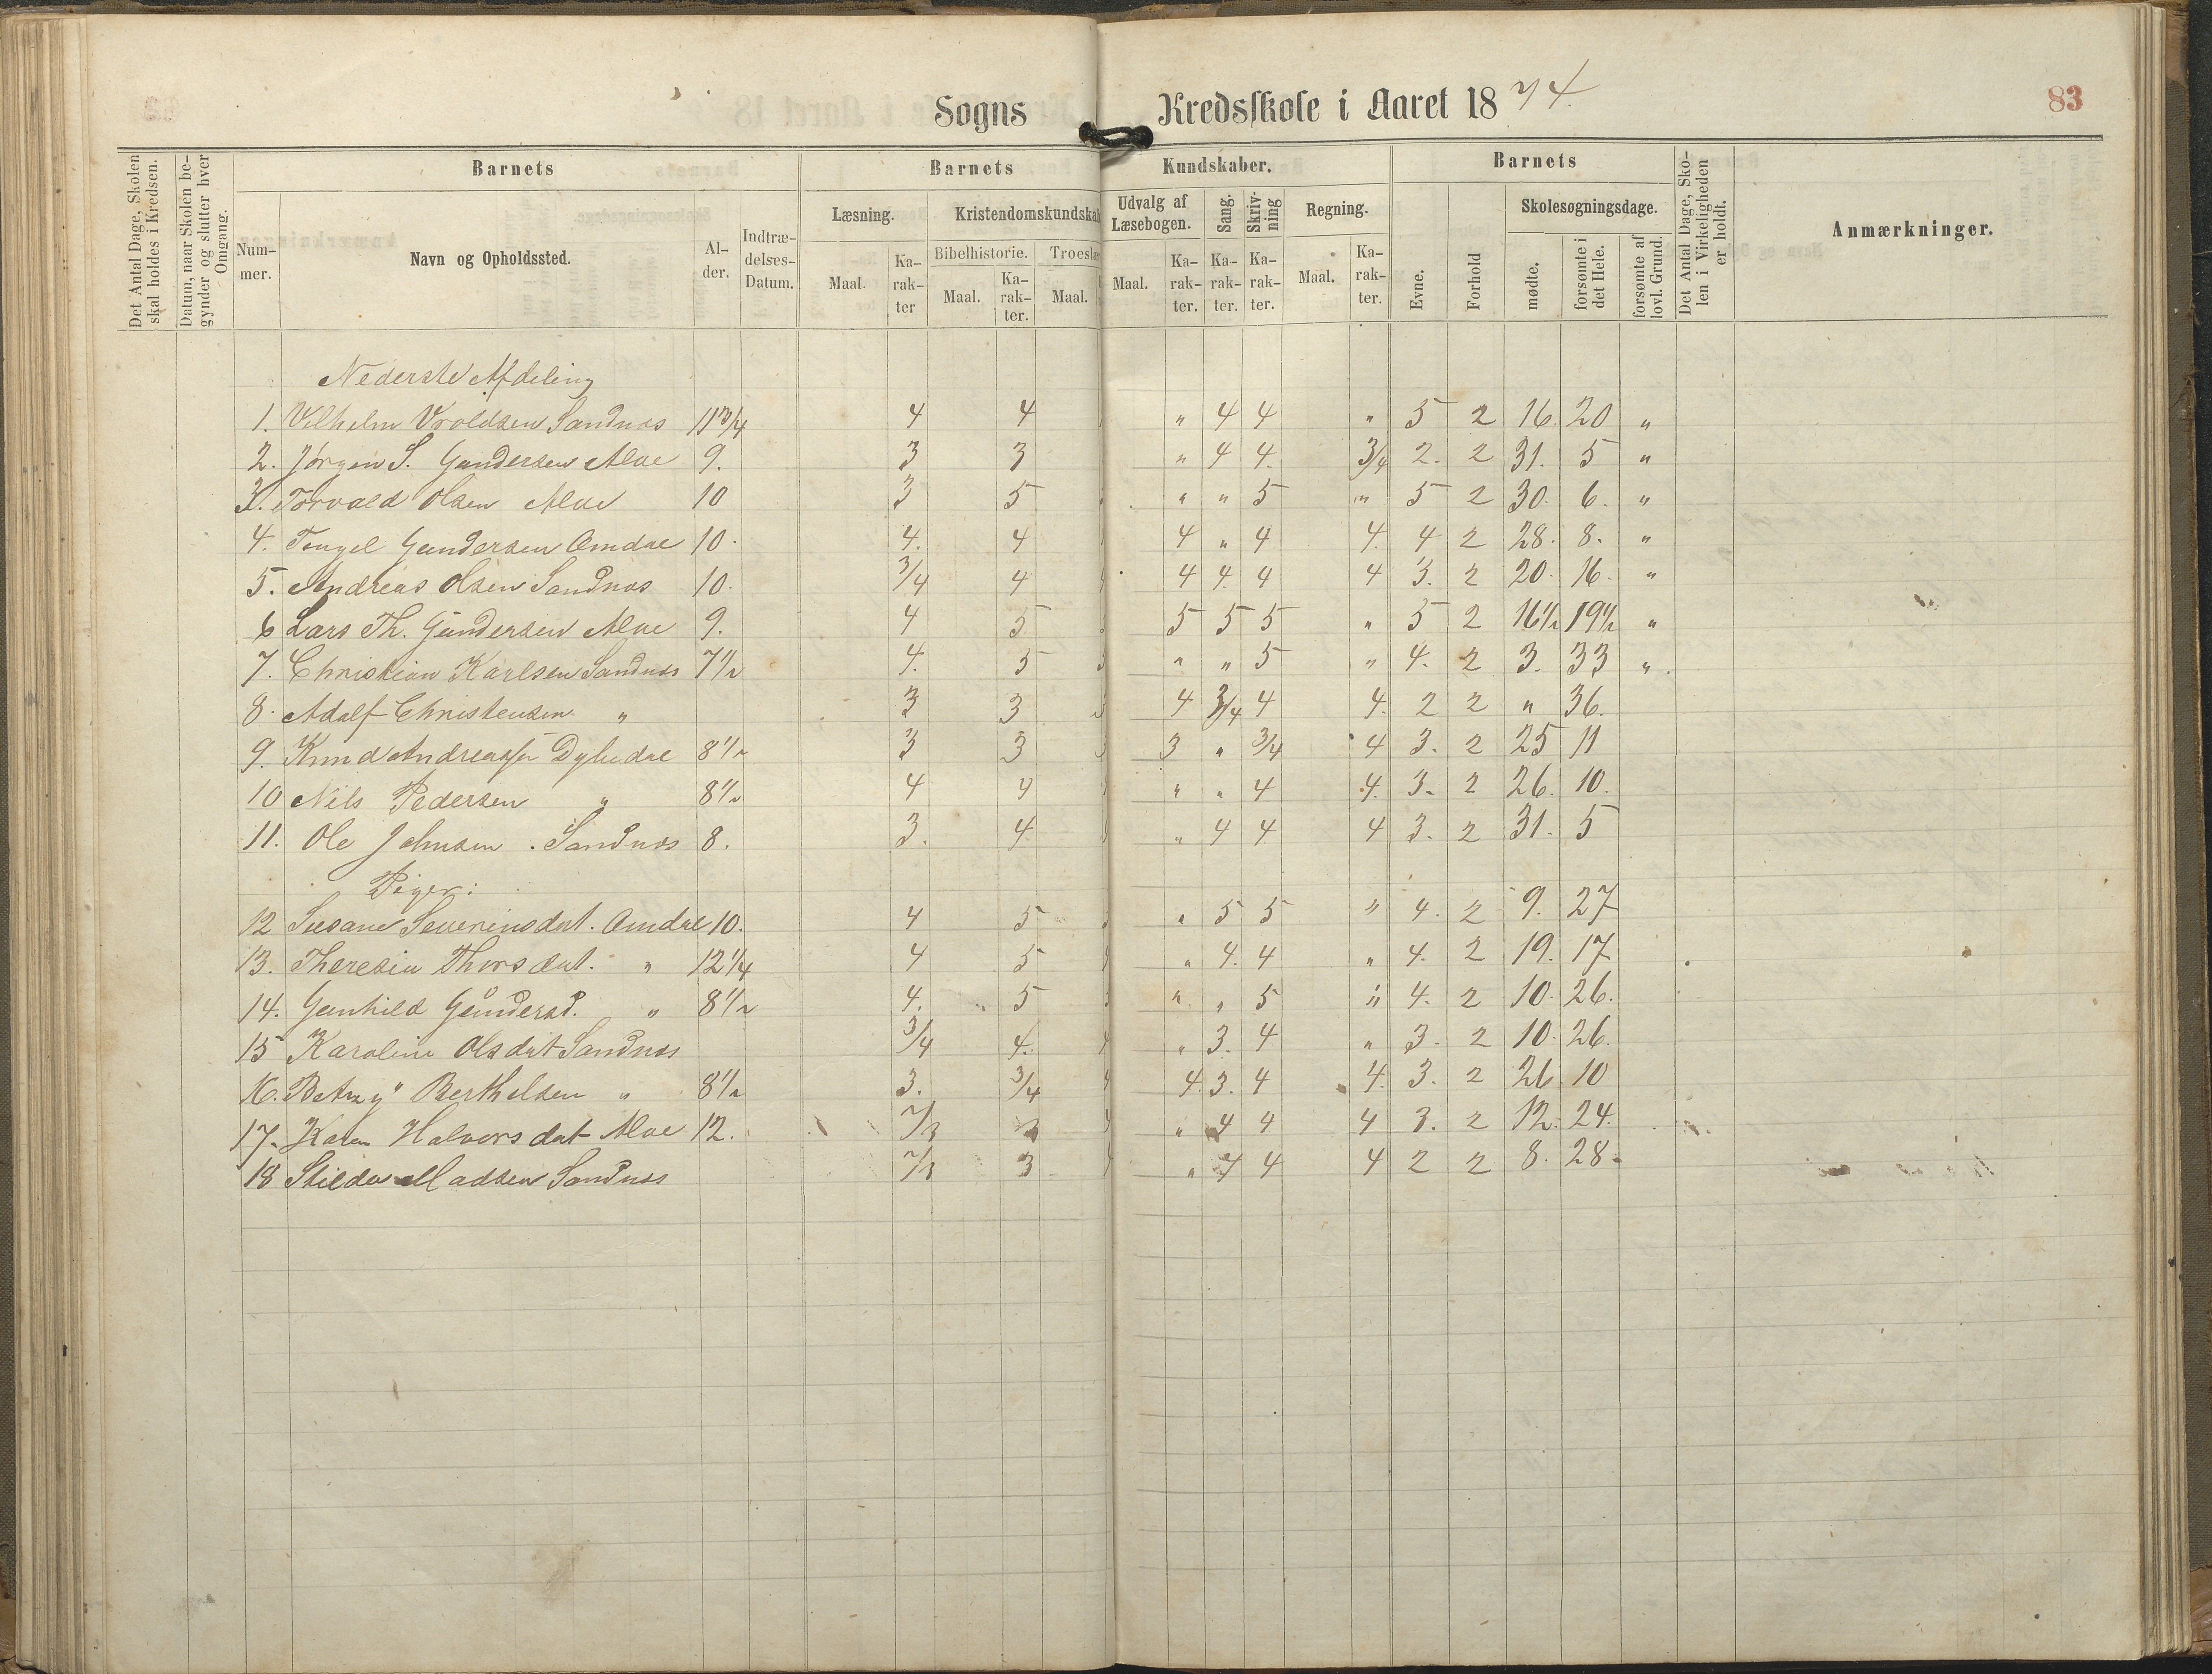 Sogns Kredsskole i Aaret 1874. 83
Det Antal Dage, Skolen skal holdes i Kredsen.
Datum, naar Skolen begynder og slutter hver Omgang.
Barnets Barnets Kundskaber. Barnets
Det Antal Dage, Skolen i Virkeligheden er holdt.
Anmærkninger.
Nummer. Navn og Opholdssted. Alder. Indtrædelses-Datum.
Læsning. Kristendomskundskab Udvalg af Læsebogen. Sang. Skrivning Regning. Evne. Forhold Skolesøgningsdage.
Bibelhistorie. Troeslæ
Maal. Karakter Maal. Karakter. Maal. Maal. Karakter. Karakter. Karakter. Maal. Karakter. mødte. forsømte i det Hele. forsømte af lovl. Grund.
Nederste Afdeling
1. Vilhelm Vroldsen Sandnes 11 3/4 4 4 " 4 4 " 5 2 16. 20 "
2. Jørgen S. Gundersen Alve 9. 3 3 " 4 4. 3/4 2. 2 31. 5 "
3. Torvald Olsen Alve 10 3 5 " " 5 " 5 2 30. 6. "
4. Tengel Gundersen Omdal 10. 4. 4 4 " 4 4. 4 2 28. 8. "
5. Andreas Olsen Sandnes 10. 3/4 4 4 4. 4 4 3. 2 20. 16. "
6 Lars Th. Gundersen Alve 9. 4 5 5 5 5 " 5 2 16 1/2 19 1/2 "
7. Christian Karlsen Sandnes 7 1/2 4. 5 " " 5 " 4. 2 3. 33 "
8. Adolf Christensen " 3 3 4 3/4 4 4. 2 2 " 36.
9. Knud Andreassen 8 1/2 3 3 3 " 3/4 4 3. 2 25 11
10 Nils Pedersen " 8 1/2 4 4 " " 4 4. 3. 2 26. 10.
11. Ole Johnsen. Sandnes 8. 3. 4 " 4 4 4 3. 2 31. 5
Piger:
12 Susane Severinsdat. Omdal 10. 4 5 " 5 5 " 4. 2 9. 27
13. Theresia Thorsdat. " 12 1/4 4 5 " 4. 4 " 4. 2 19. 17
14. Gunhild Gundersd. " 8 1/2 4. 5 " " 5 " 4. 2 10. 26.
15 Karoline Olsdat Sandnes 3/4 4. " 3. 4 " 3. 2 10. 26.
16. Betzy Berthelsen " 8 1/2 3. 3/4 4. 3. 4 4. 3. 2 26. 10
17. Karen Halvorsdat Alve 12. 2/3 " 4 4 4 3. 2 12. 24.
18 Madsen Sandnes 2/3 3 " 4 4 4 2 2 8. 28.